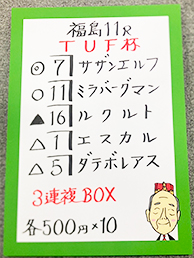 福島11R
TUF杯
◎ 7 サザンエルフ
○ 11 ミラバーグマン
▲ 16 ルクルト
△ 1 エスカル
△ 5 ダテボレアス
3連複BOX
各500円×10